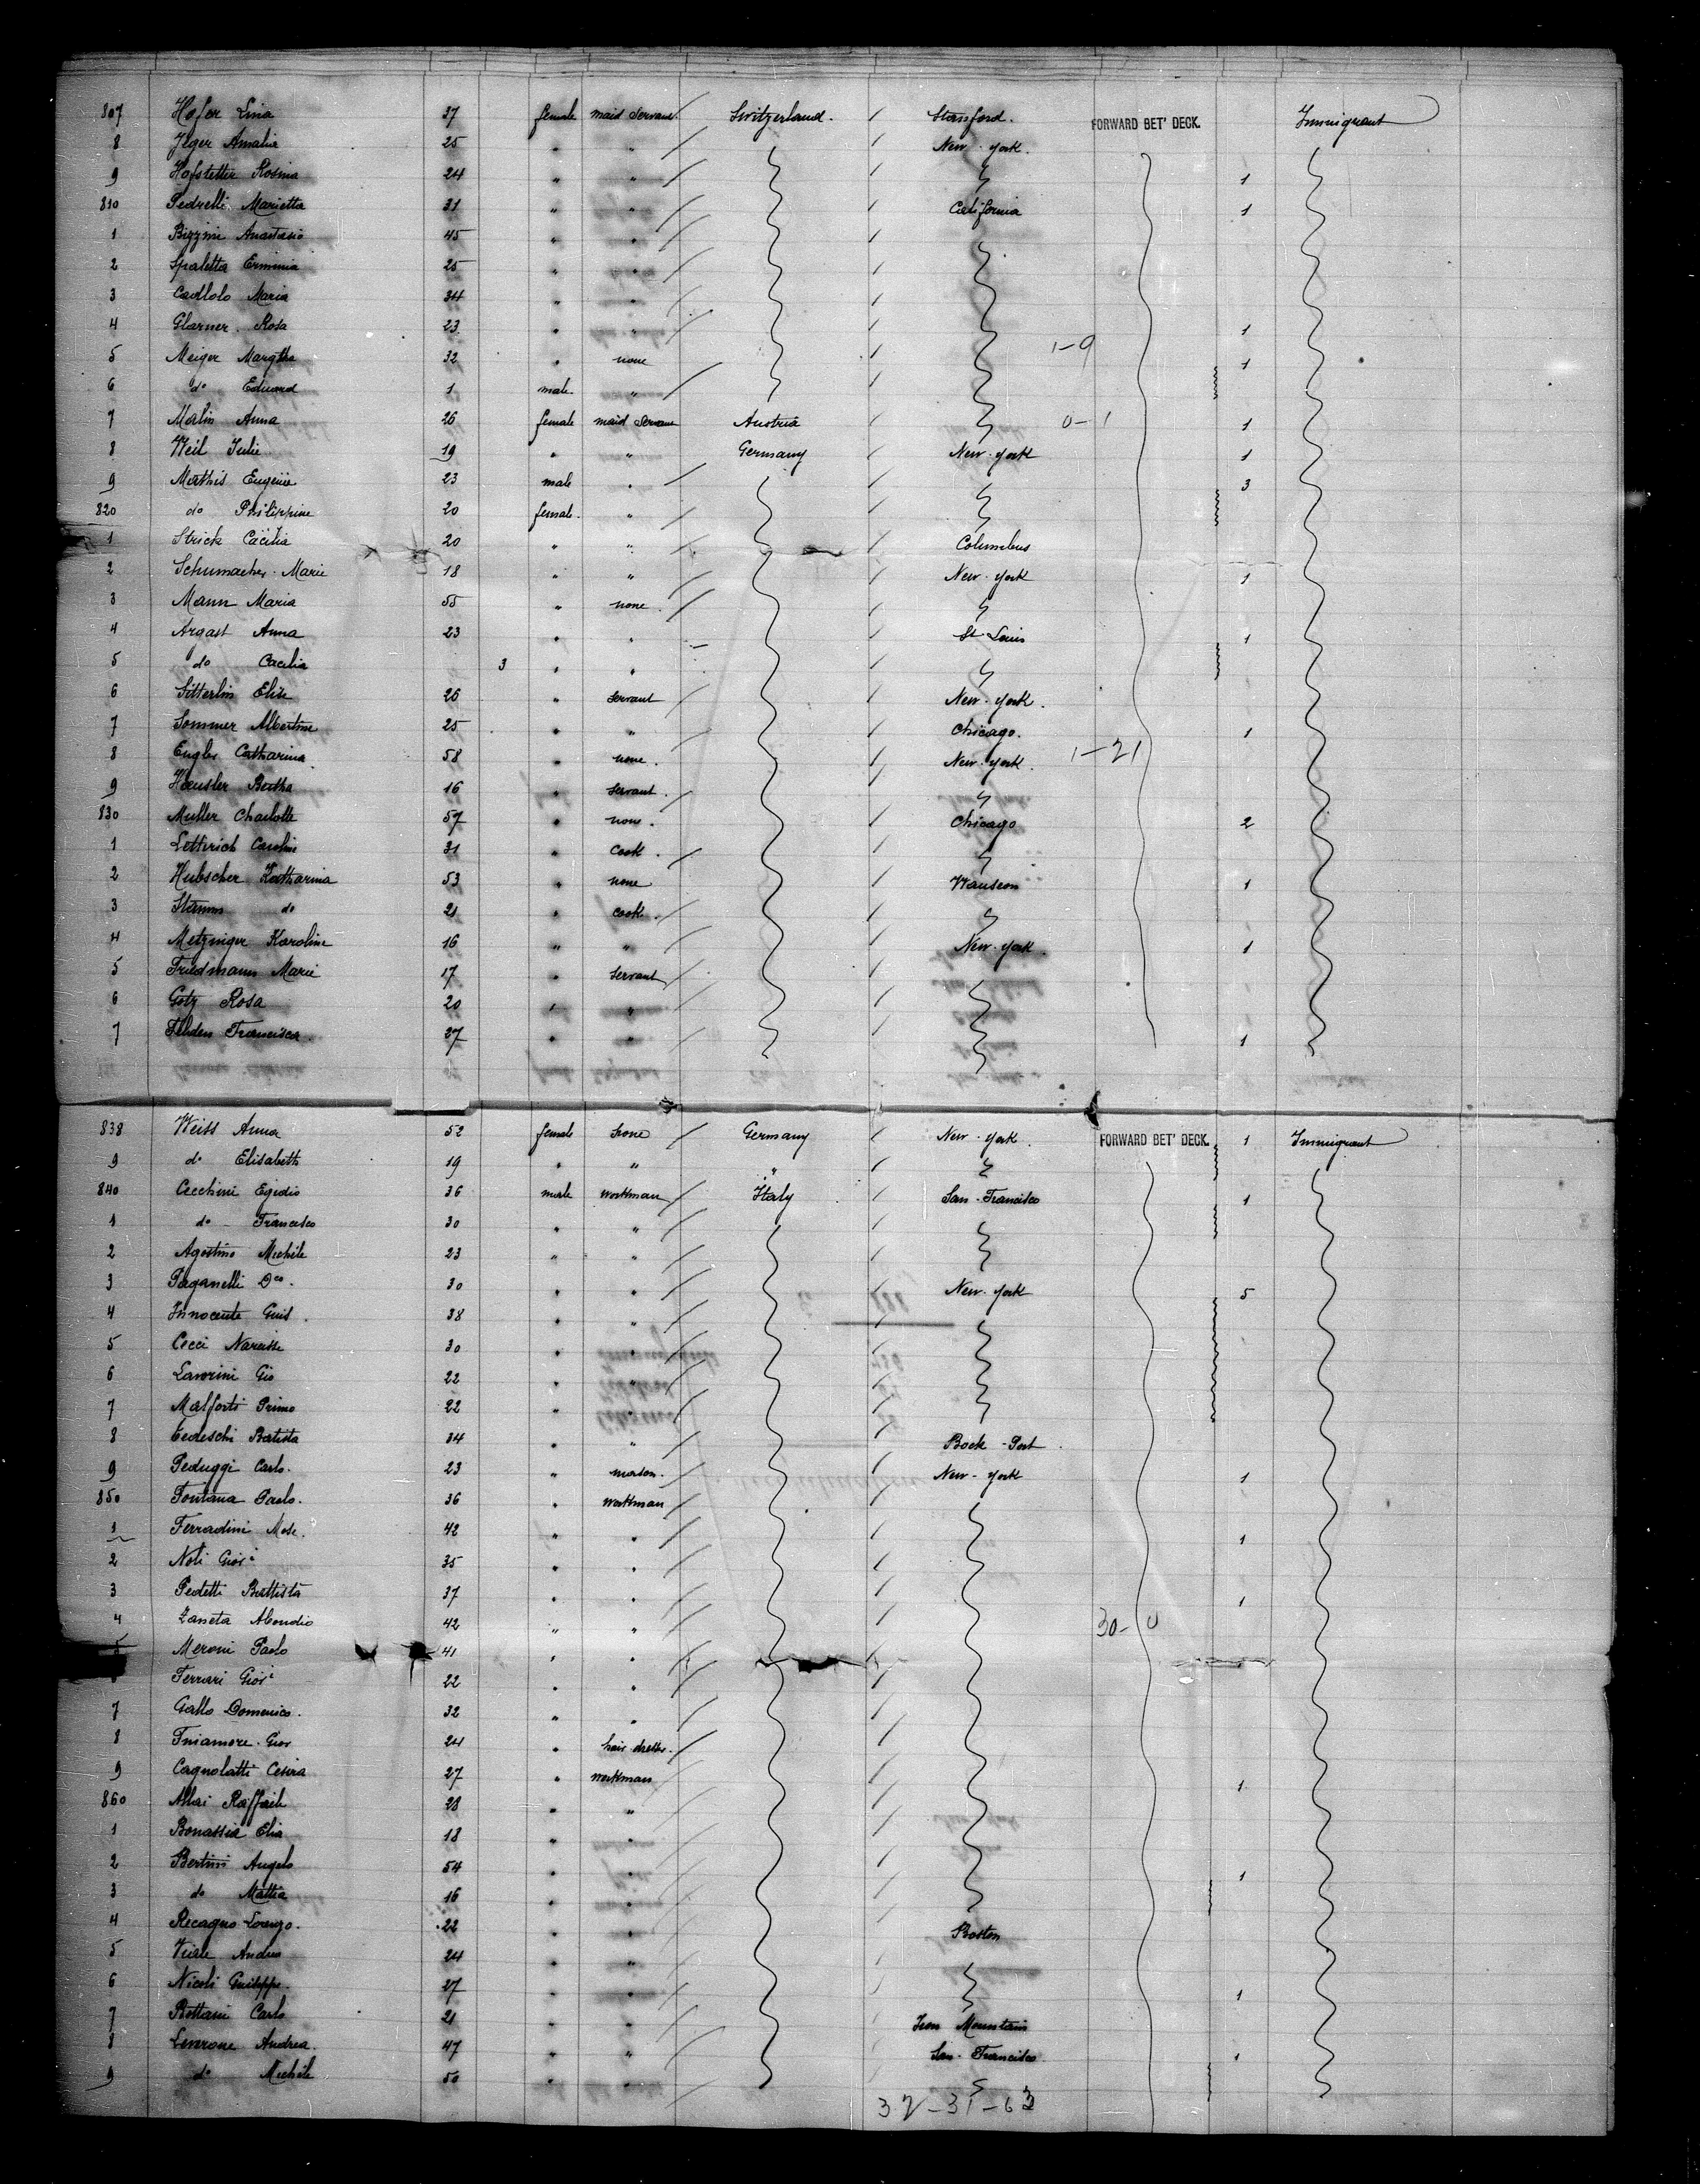 807 Hofer Lina 37 female maid servant Switzerland. Stanford. FORWARD BET' DECK. Immigrant
8 Jeger Amalia 25 " " New-York.
9 Hofstetter Rosina 24 " " 1
810 Pedrelli Marietta 31 " " California 1
1 Bizzini Anastasio 45 " "
2 Spaletta Erminia 25 " "
3 Maria 34 " "
4 Glarner Rosa 23 " " 1
1-9
5 Meiger Margtha 32 " none 1
6 do Eduard 1 male. "
7 Malin Anna 26 female maid servant Austria 0-1 1
8 Weil Julie 19 " " Germany New-York 1
9 Mathis Eugène 23 male " 3
820 do Philippine 20 female. "
1 Strick Cäcilia 20 " " Columbus
2 Schumacher Marie 18 " " New-York 1
3 Mann Maria 55 " none.
4 Argast Anna 23 " " St Louis 1
5 do Cacilia 3 " "
6 Sitterlin Elise 26 " servant New-York.
7 Sommer Albertine 25 " " Chicago. 1
8 Engler Catharina 58 " none. New-York. 1-21
9 Hausler Bertha 16 " servant.
830 Muller Charlotte 57 " none. Chicago 2
1 Letterich Caroline 31 " cook.
2 Hubscher Katharina 53 " none Wauseon 1
3 Stamm do 21 " cook.
4 Metzniger Karoline 16 " " New-York. 1
5 Friedmann Marie 17 " servant
6 Götz Rosa 20 " "
7 Francisca 27 " " 1
838 Weiss Anna 52 female none Germany New-York. FORWARD BET' DECK. 1 Immigrant
9 do Elisabeth 19 " " "
840 Cecchini Egidio 36 male workman Italy San-Francisco 1
1 do Francesco 30 " "
2 Agostino Michele 23 " "
3 Paganelli Dco. 30 " " New-York 5
4 Innocente Guis. 38 " "
5 Cecci Narcisse 30 " "
6 Lavorini Gio 22 " "
7 Malforti Primo 22 " "
8 Tedeschi Batista 34 " " Rock-Port.
9 Peduggi Carlo. 23 " mason. New-York 1
850 Fontana Paolo. 36 " workman
1 Ferradini Mose. 42 " " 1
2 Noti Giosi 35 " "
3 Pedetti Battista 37 " " 1
4 Zaneta Abondio 42 " " 30-0
5 Meroni Paolo 41 " "
Ferrari Giosi 22 " "
7 Gallo Domenico. 32 " "
8 Gior 24 " hair dresser.
9 Cagnolatti Cesira 27 " workman 1
860 Raffaele 28 " "
1 Bonassia Elia 18 " "
2 Bertini Angelo 54 " " 1
3 do Mattia 16 " "
4 Recagno Lorenzo. 22 " " Boston
5 Viale Andrea 24 " "
6 Nicoli Guiseppe. 27 " " 1
7 Bottani Carlo 21 " " Iron Mountain
8 Andrea. 47 " " San-Francisco. 1
9 do Michele 50 " "
32-31-63